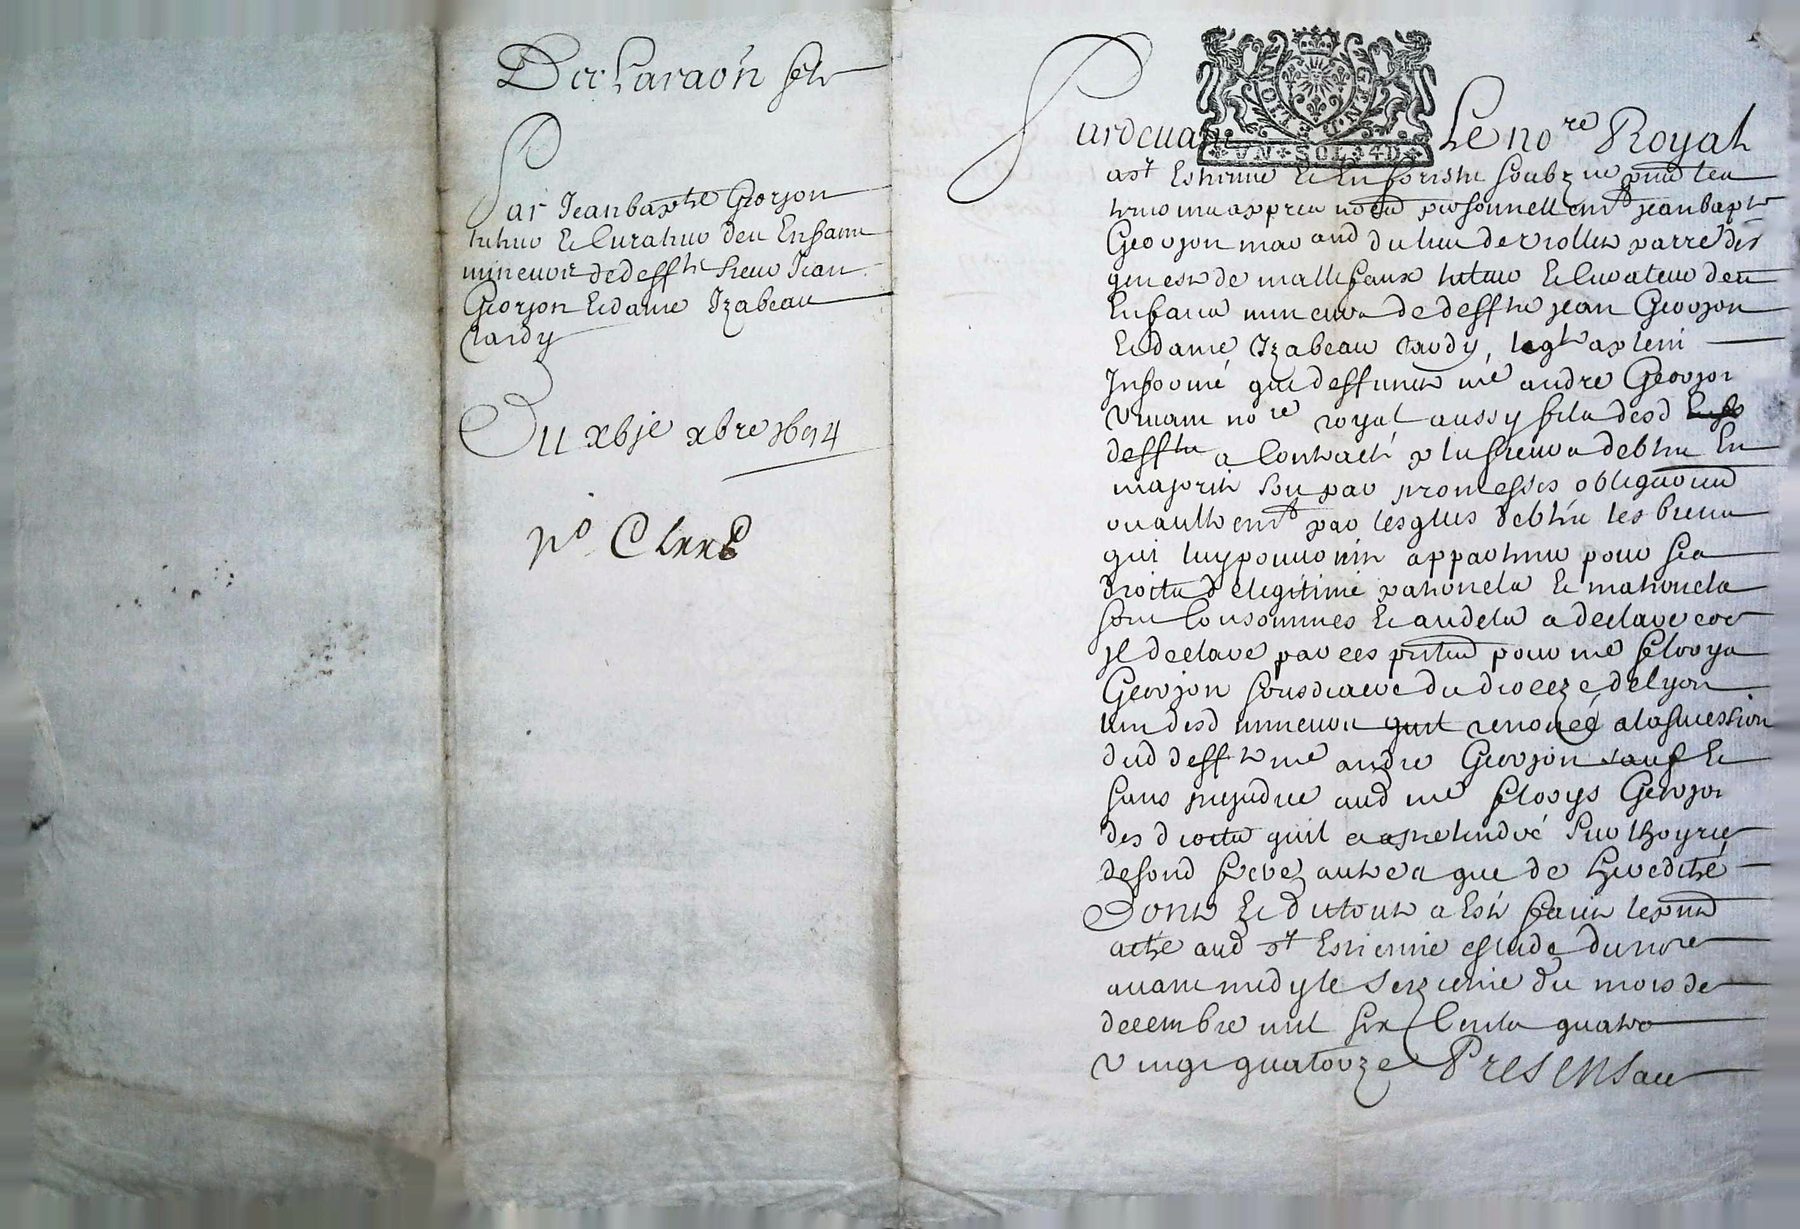 Declaraon
Par Jeanbapte Georjon
tuteur et Curateur des Enfans
mineurs de deffts sieur Jean
Georjon et dame Izabeau
tardy
Du xbje xbre 1694
po Clerc
GENE DE LION
VN SOL 4D
Pardevant Le nore Royal
a st Estienne et en forisht soubzne
personnellemt jean bapte
Georjon marand du lieu de riolles parre des
gen est de mallifaux tuteur et curateur des
Enfans mineurs de deffts jean Georjon
et dame Izabeau tardy, leql aplein
Informé que deffunct me andre Georjon
vivant nore royal aussy fils desd
deffts a Contracté plusieurs debtes En
majorité soit par promesses obligaons
ou aultremt par lesqlles debtes les biens
qui luy pourroient appartenir pour ses
droits de legitime paternels et maternels
sont Consommes et audela a declare
Il declare par ces pntes pour me
Georjon sousdiacre du dioceze de lyon
lun desd mineurs quil renonce a la succession
dud defft me andre Georjon sauf et
sans prejudice aud me Georjon
des droits quil a a pretendre sur
desond frere autres que de heredité
Dont et du tout a Esté fait les pnt
acte aud st Estienne estude du nore
avant midy le seizieme du mois de
decembre mil six Cents quatre
vingt quatorze Presens au